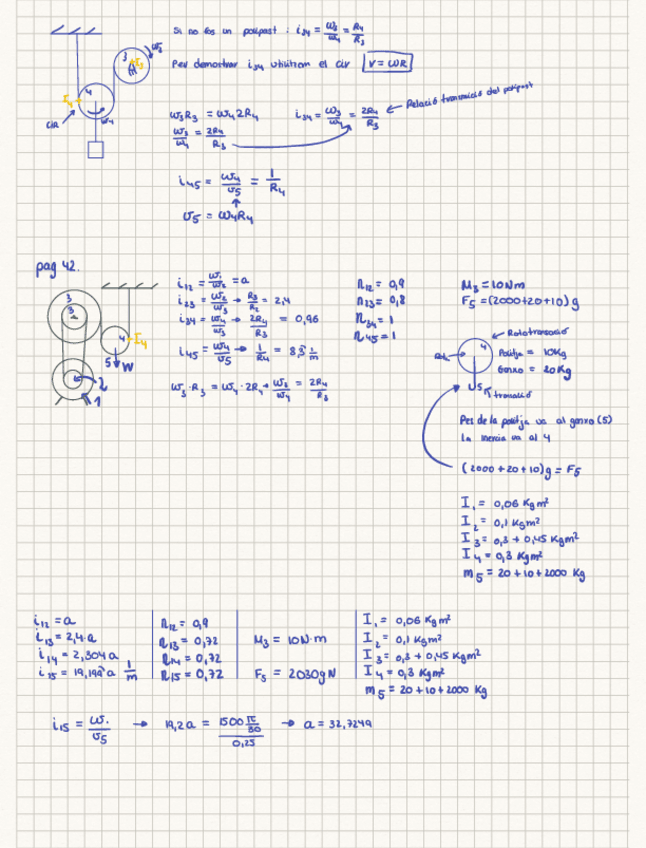 Si no fos un polipast : i₃₄ = ω₃/ω₄ = R₄/R₃
Per demostrar i₃₄ utilitzem el cir V = ωR
3
ω₃
I₃
4
I₄
CIR
ω₄
ω₃R₃ = ω₄2R₄
i₃₄ = ω₃/ω₄ = 2R₄/R₃ ← Relació transmissió del polipast
ω₃/ω₄ = 2R₄/R₃
i₄₅ = ω₄/v₅ = 1/R₄
v₅ = ω₄R₄
pag 42.
3
3
2
4
I₄
5
W
2
1
i₁₂ = ω₁/ω₂ = a
i₂₃ = ω₂/ω₃ → R₃/R₂ = 2,4
i₃₄ = ω₄/ω₃ → 2R₄/R₃ = 0,96
i₄₅ = ω₄/v₅ → 1/R₄ = 8,3 1/m
ω₃·R₃ = ω₄·2R₄ → ω₃/ω₄ = 2R₄/R₃
η₁₂ = 0,9
η₂₃ = 0,8
η₃₄ = 1
η₄₅ = 1
M₃ = 10Nm
F₅ = (2000+20+10)g
4
Politja = 10Kg
Ganxo = 20Kg
v₅
translació
Pes de la politja va al ganxo (5)
La inercia va al 4
(2000+20+10)g = F₅
I₁ = 0,06 Kgm²
I₂ = 0,1 Kgm²
I₃ = 0,3 + 0,45 Kgm²
I₄ = 0,3 Kgm²
m₅ = 20+10+2000 Kg
i₁₂ = a
i₁₃ = 2,4·a
i₁₄ = 2,304a
i₁₅ = 19,199a 1/m
η₁₂ = 0,9
η₁₃ = 0,72
η₁₄ = 0,72
η₁₅ = 0,72
M₃ = 10N·m
F₅ = 2030g N
I₁ = 0,06 Kgm²
I₂ = 0,1 Kgm²
I₃ = 0,3 + 0,45 Kgm²
I₄ = 0,3 Kgm²
m₅ = 20+10+2000 Kg
i₁₅ = ω₁/v₅ → 19,2a = (1500 π/30)/0,25 → a = 32,7249